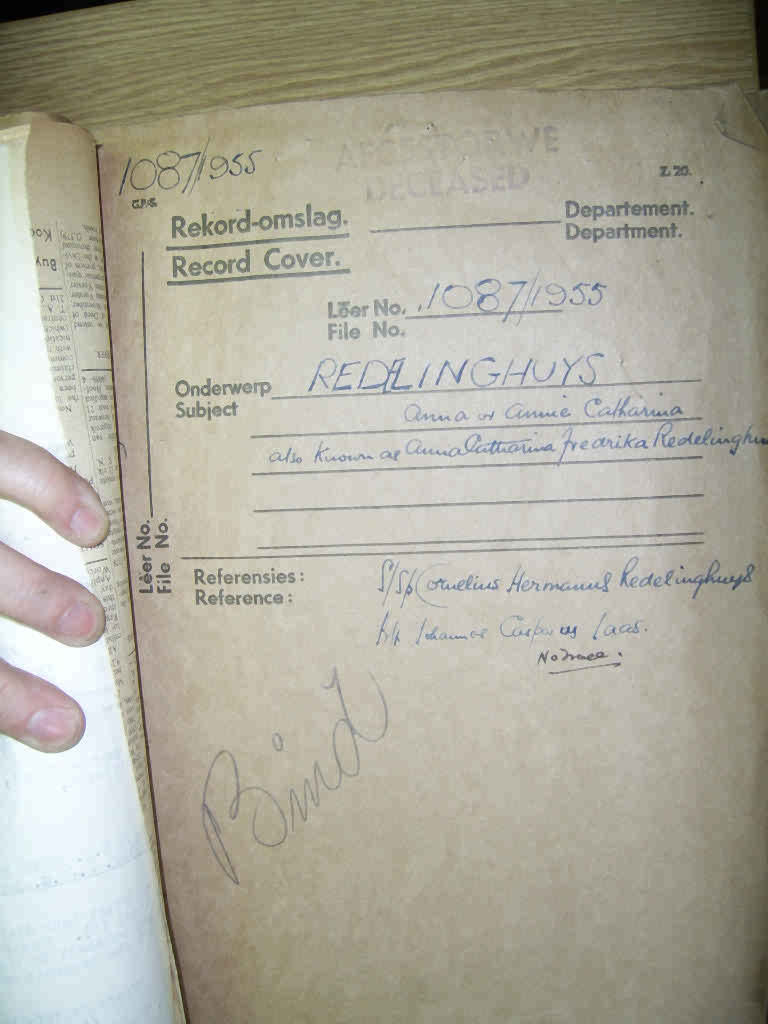 1087/1955
AFGESTORWE
DECEASED
Z. 20.
G.P.-S.
Rekord-omslag.
Record Cover.
Departement.
Department.
Lêer No. 1087/1955
File No.
Onderwerp REDELINGHUYS
Subject
Anna or Annie Catharina
also known as Anna Catharina Fredrika Redelinghuys
Lêer No.
File No.
Referensies:
Reference:
S/Sp Cornelius Hermanus Redelinghuys
Johannes Casparus Laas.
No Trace.
Bind